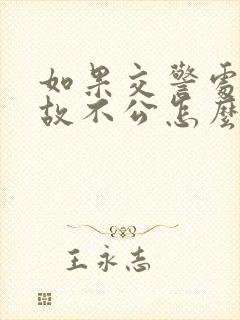 如果交警處
故不公怎麼
王永志